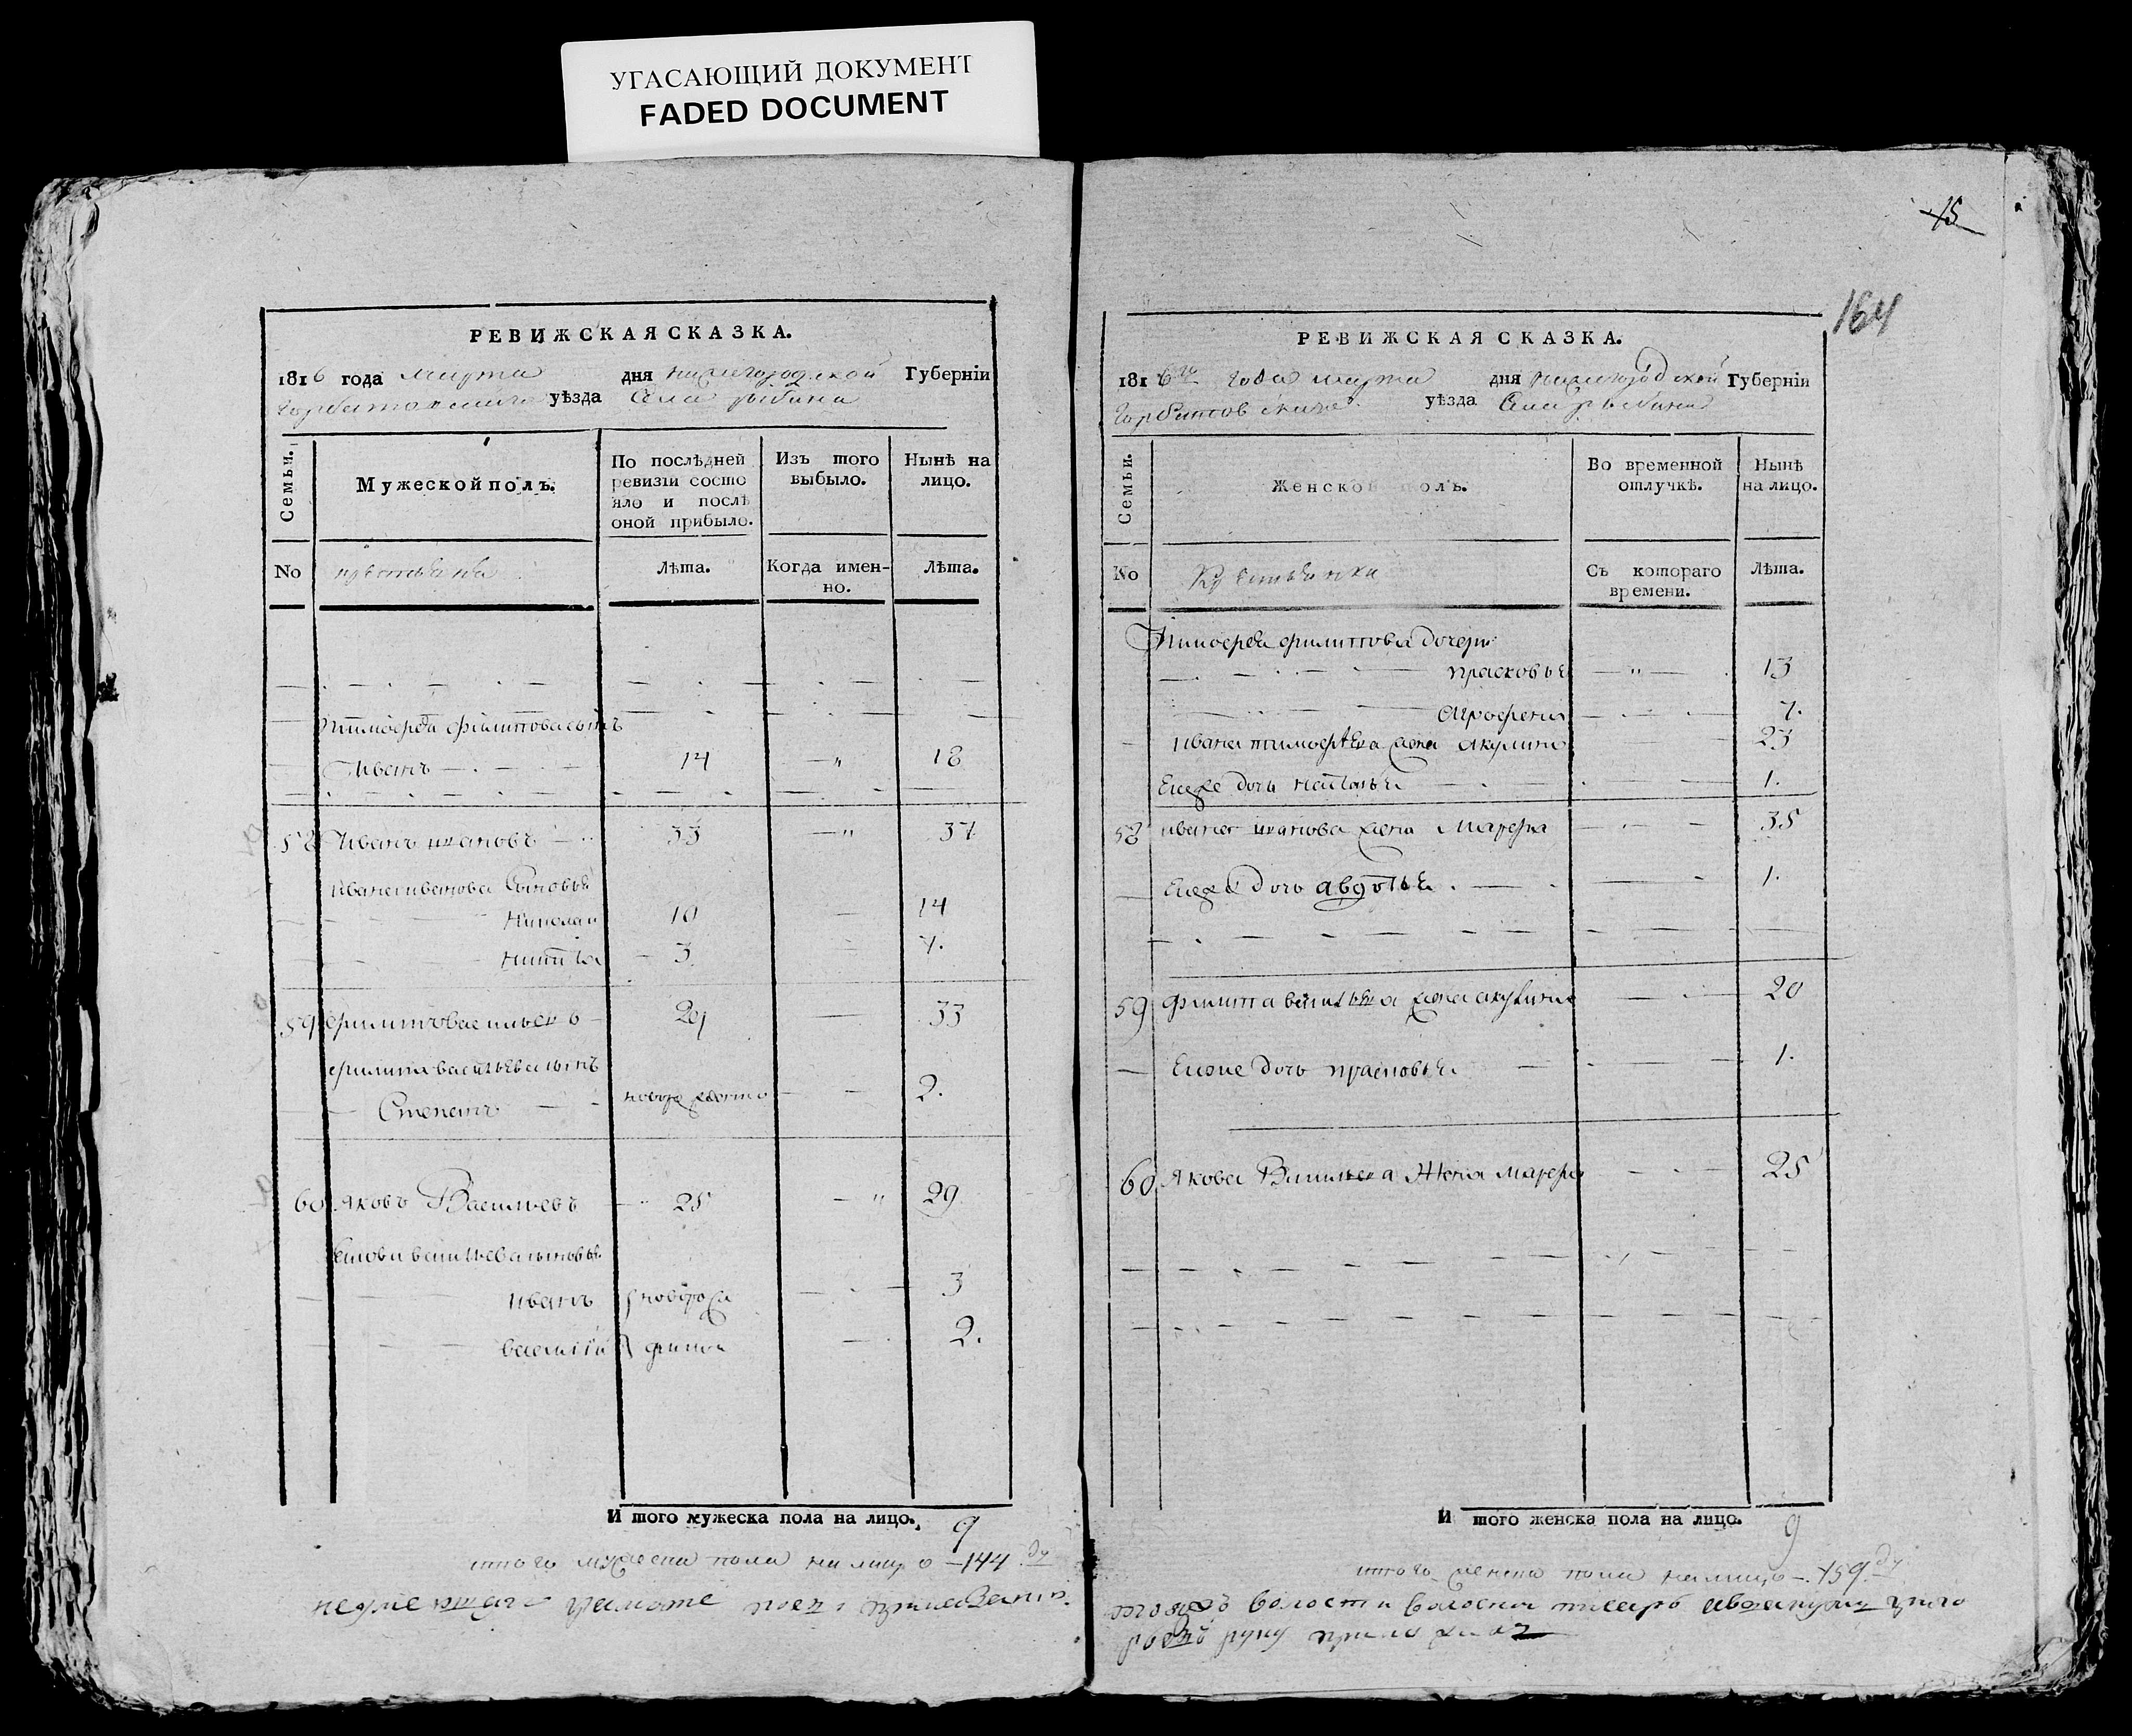 УГАСАЮЩИЙ ДОКУМЕНТ
FADED DOCUMENT
РЕВИЖСКАЯ СКАЗКА.
1816 года марта дня нижегородской Губерніи
горбатовскаго уѣзда села рыбина
Семьи.
Мужеской полъ.
По послѣдней ревизіи состояло и послѣ оной прибыло.
Изъ того выбыло.
Нынѣ на лицо.
No
Лѣта.
Когда именно.
Лѣта.
тимофея филиппова сынъ
Иванъ 14 18
58 Иванъ ивановъ 33 37
ивана иванова сыновья
Николай 10 14
никита 3 7.
59 филипъ васильевъ 29 33
филипа васильева сынъ
Степанъ новорожденъ 2.
60 Яковъ Васильевъ 25 29
якова васильева сыновья
иванъ новорож 3
василий дении 2.
И того мужеска пола на лицо. 9
итого мужеска пола на лицо 144 ду
неумеющаго грамоте
15
164
РЕВИЖСКАЯ СКАЗКА.
1816го года марта дня нижегородской Губерніи
горбатовскаго уѣзда села рыбина
Семьи.
Женской полъ.
Во временной отлучкѣ.
Нынѣ на лицо.
No
Съ котораго времени.
Лѣта.
Тимофея филиппова дочери
прасковья 13
Аграфена 7.
ивана тимофѣева жена акулина 23
Еиже дочь наталья 1.
58 ивана иванова жена Марфа 35
Еиже дочь авдотья 1.
59 филипа васильева жена акулина 20
Еиже дочь прасковья 1.
60 Якова Васильева жена марфа 25
И того женска пола на лицо. 9
итого женска пола на лицо 159 ду
волости писарь
руку приложилъ